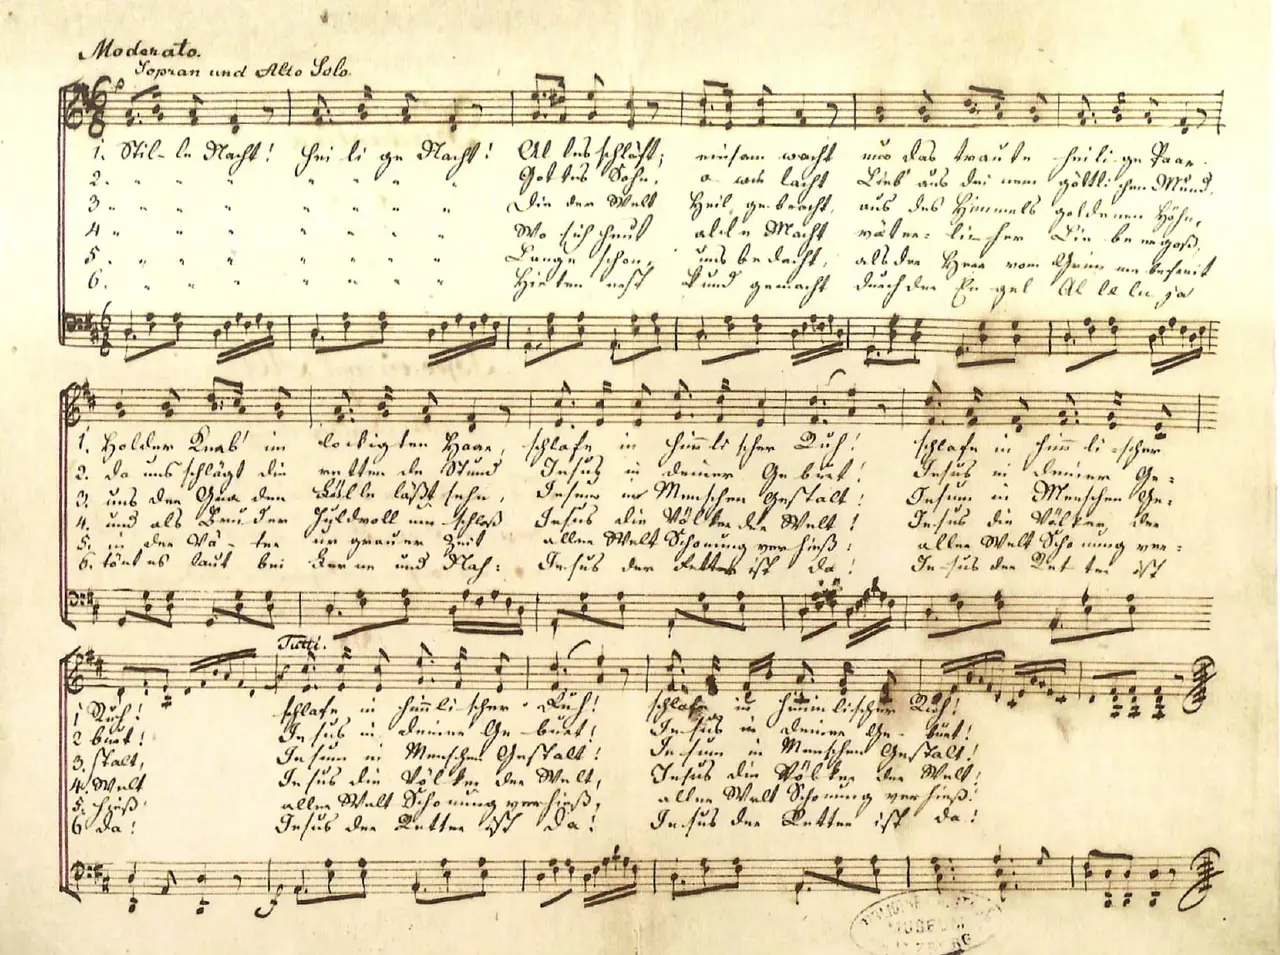 Moderato.
Sopran und Alto Solo.
1. Stil- le Nacht! Hei li ge Nacht! Al les schläft; einsam wacht nur das traute heili ge Paar.
2. " " " " " " " " Gottes Sohn, o wie lacht Lieb' aus dei nem göttli chen Mund,
3 " " " " " " " " Die der Welt Heil gebracht, aus des Himmels goldenen Höhn,
4 " " " " " " " " Wo sich heut alle Macht väter- licher Lie be ergoß,
5. " " " " " " " " Lange schon, uns bedacht, als der Herr vom Grim me befreit
6. " " " " " " " " Hirten erst kund gemacht durch der En gel Al le lu ja
1. Holder Knab' im lockigten Haar, schlafe in himmli scher Ruh! schlafe in himm li -scher
2. da uns schlägt die retten de Stund Jesus in deiner Geburt! Jesus in deiner Ge-
3. uns der Gna den Fülle läßt sehn, Jesum in Menschen Gestalt! Jesum in Menschen Ge-
4. und als Bruder huldvoll um schloß Jesus die Völker der Welt! Jesus die Völker der
5. in der Vä- ter ur grauer Zeit aller Welt Schonung verhieß! aller Welt Scho nung ver-
6. tönt es laut bei Ferne und Nah: Jesus der Retter ist da! Je sus der Ret ter ist
Tutti.
1 Ruh! schlafe in himmli scher Ruh! schlafe in himmlischer Ruh!
2 burt! Je sus in deiner Ge burt! Je sus in deiner Ge- burt!
3. stalt, Jesum in Menschen Gestalt! Je sum in Menschen Gestalt!
4. Welt Jesus die Völker der Welt, Jesus die Völker der Welt!
5. hieß aller Welt Schonung verhieß, aller Welt Schonung verhieß!
6 da! Jesus der Retter ist da! Je sus der Retter ist da!
MUSEUM